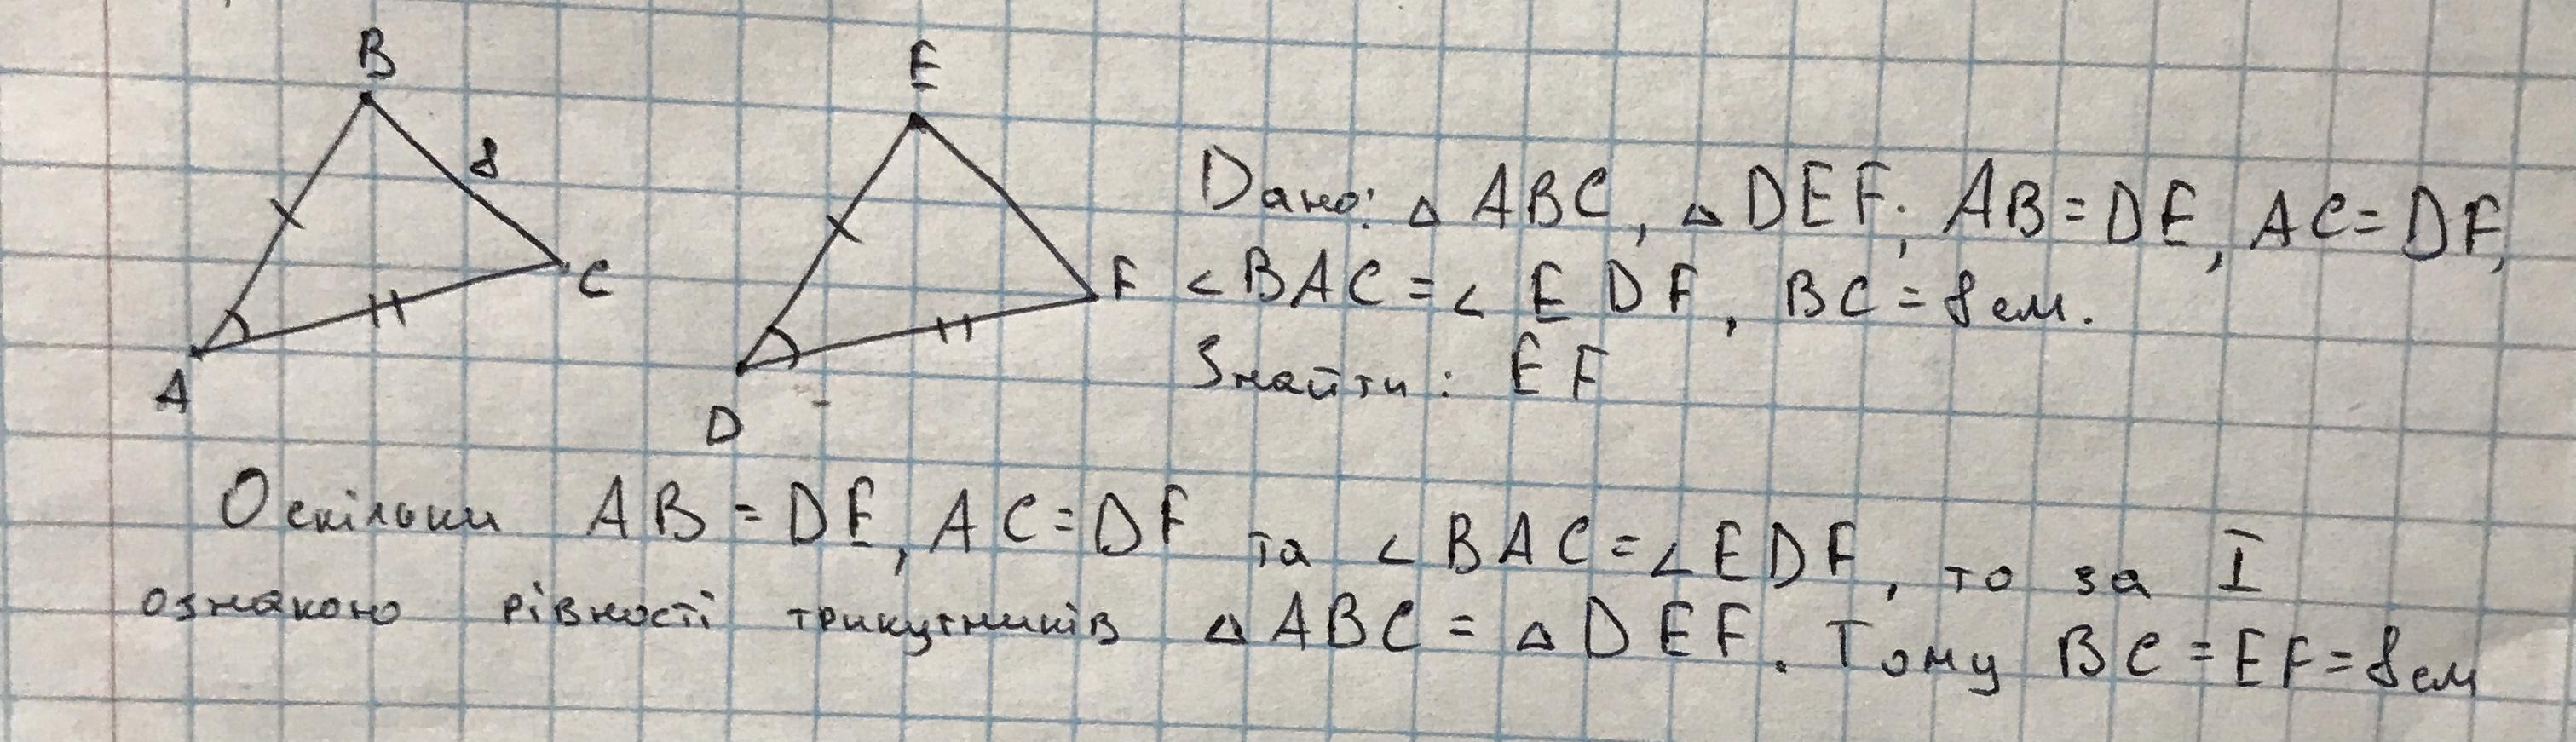 B
E
8
C
F
A
D
Дано: △ ABC, △ DEF; AB = DE, AC = DF,
∠BAC = ∠ EDF, BC = 8 см.
Знайти: EF
Оскільки AB = DE, AC = DF та ∠BAC = ∠EDF, то за I
ознакою рівності трикутників △ABC = △DEF. Тому BC = EF = 8 см